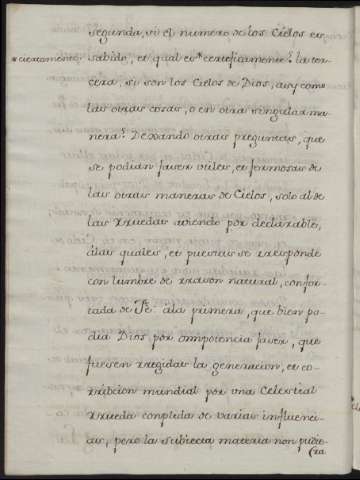 segunda, si el numero de los Cielos es
*ciertamente
sabido, et qual es* certificamente? la ter-
cera, si son los Cielos de Dios, assy como
las otras cosas, o en otra singular ma-
nera? Dexando otras preguntas, que
se podian facer utiles, et fermosas de
las otras maneras de Cielos, solo al de
las rruedas aviendo por declarable,
á las quales, et puestas se rresponde
con lumbre de rrazon natural, confor-
tada de Fé. á la primera, que bien po-
dia Dios por omnipotencia facer, que
fuesen rregidas la generacion, et co-
rrubcion mundial por una Celestial
rrueda complida de varias influenci-
as, pero la subiecta materia non pudie-
(ra